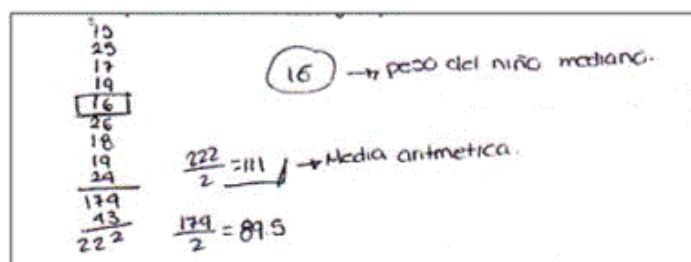 15
25
17
19
16
26
18
19
24
179
43
222
16 → peso del niño mediano.
222/2 = 111 → Media aritmetica.
179/2 = 89.5